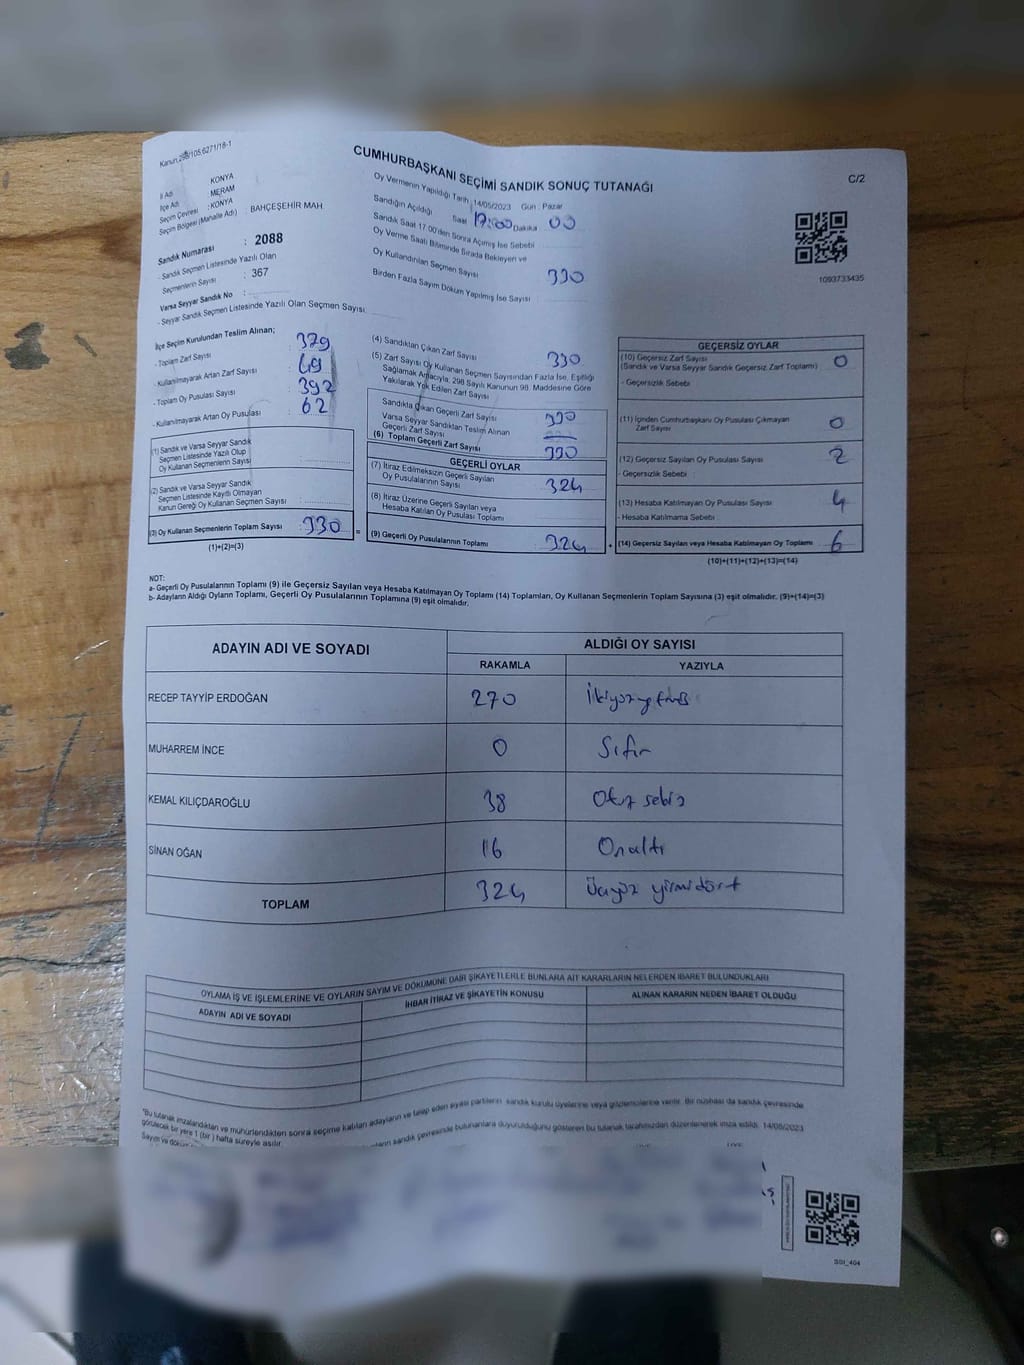 Kanun 298/105,6271/18-1
CUMHURBAŞKANI SEÇİMİ SANDIK SONUÇ TUTANAĞI
C/2
İl Adı : KONYA
İlçe Adı : MERAM
Seçim Çevresi : KONYA
Seçim Bölgesi (Mahalle Adı) : BAHÇEŞEHİR MAH.
Sandık Numarası : 2088
- Sandık Seçmen Listesinde Yazılı Olan
Seçmenlerin Sayısı : 367
Varsa Seyyar Sandık No :
- Seyyar Sandık Seçmen Listesinde Yazılı Olan Seçmen Sayısı:
Oy Vermenin Yapıldığı Tarih : 14/05/2023 Gün : Pazar
Sandığın Açıldığı Saat 17:00 Dakika 00
Sandık Saat 17.00'den Sonra Açılmış İse Sebebi
Oy Verme Saati Bitiminde Sırada Bekleyen ve
Oy Kullandırılan Seçmen Sayısı 330
Birden Fazla Sayım Döküm Yapılmış İse Sayısı
1093733435
İlçe Seçim Kurulundan Teslim Alınan;
- Toplam Zarf Sayısı : 379
- Kullanılmayarak Artan Zarf Sayısı : 49
- Toplam Oy Pusulası Sayısı : 392
- Kullanılmayarak Artan Oy Pusulası : 62
(1) Sandık ve Varsa Seyyar Sandık
Seçmen Listesinde Yazılı Olup
Oy Kullanan Seçmenlerin Sayısı
(2) Sandık ve Varsa Seyyar Sandık
Seçmen Listesinde Kayıtlı Olmayan
Kanun Gereği Oy Kullanan Seçmen Sayısı :
(3) Oy Kullanan Seçmenlerin Toplam Sayısı : 330 =
(1)+(2)=(3)
(4) Sandıktan Çıkan Zarf Sayısı 330
(5) Zarf Sayısı Oy Kullanan Seçmen Sayısından Fazla İse, Eşitliği
Sağlamak Amacıyla, 298 Sayılı Kanunun 98. Maddesine Göre
Yakılarak Yok Edilen Zarf Sayısı
Sandıkta Çıkan Geçerli Zarf Sayısı 330
Varsa Seyyar Sandıktan Teslim Alınan
Geçerli Zarf Sayısı
(6) Toplam Geçerli Zarf Sayısı 330
GEÇERLİ OYLAR
(7) İtiraz Edilmeksizin Geçerli Sayılan
Oy Pusulalarının Sayısı 324
(8) İtiraz Üzerine Geçerli Sayılan veya
Hesaba Katılan Oy Pusulası Toplamı
(9) Geçerli Oy Pusulalarının Toplamı 324 +
GEÇERSİZ OYLAR
(10) Geçersiz Zarf Sayısı 0
(Sandık ve Varsa Seyyar Sandık Geçersiz Zarf Toplamı)
- Geçersizlik Sebebi
(11) İçinden Cumhurbaşkanı Oy Pusulası Çıkmayan
Zarf Sayısı 0
(12) Geçersiz Sayılan Oy Pusulası Sayısı 2
- Geçersizlik Sebebi
(13) Hesaba Katılmayan Oy Pusulası Sayısı 4
- Hesaba Katılmama Sebebi
(14) Geçersiz Sayılan veya Hesaba Katılmayan Oy Toplamı 6
(10)+(11)+(12)+(13)=(14)
NOT:
a- Geçerli Oy Pusulalarının Toplamı (9) ile Geçersiz Sayılan veya Hesaba Katılmayan Oy Toplamı (14) Toplamları, Oy Kullanan Seçmenlerin Toplam Sayısına (3) eşit olmalıdır. (9)+(14)=(3)
b- Adayların Aldığı Oyların Toplamı, Geçerli Oy Pusulalarının Toplamına (9) eşit olmalıdır.
ADAYIN ADI VE SOYADI
ALDIĞI OY SAYISI
RAKAMLA YAZIYLA
RECEP TAYYİP ERDOĞAN 270 İkiyüzyetmiş
MUHARREM İNCE 0 Sıfır
KEMAL KILIÇDAROĞLU 38 Otuz sekiz
SİNAN OĞAN 16 Onaltı
TOPLAM 324 Üçyüz yirmidört
OYLAMA İŞ VE İŞLEMLERİNE VE OYLARIN SAYIM VE DÖKÜMÜNE DAİR ŞİKAYETLERLE BUNLARA AİT KARARLARIN NELERDEN İBARET BULUNDUKLARI
ADAYIN ADI VE SOYADI
İHBAR İTİRAZ VE ŞİKAYETİN KONUSU
ALINAN KARARIN NEDEN İBARET OLDUĞU
*Bu tutanak imzalandıktan ve mühürlendikten sonra seçime katılan adayların ve talep eden siyasi partilerin sandık kurulu üyelerine veya gözlemcilerine verilir. Bir nüshası da sandık çevresinde
görülecek bir yere 1 (bir) hafta süreyle asılır.
Sayım ve döküm sandık çevresinde bulunanlara duyurulduğunu gösteren bu tutanak tarafımızdan düzenlenerek imza edildi. 14/05/2023
SSI_404